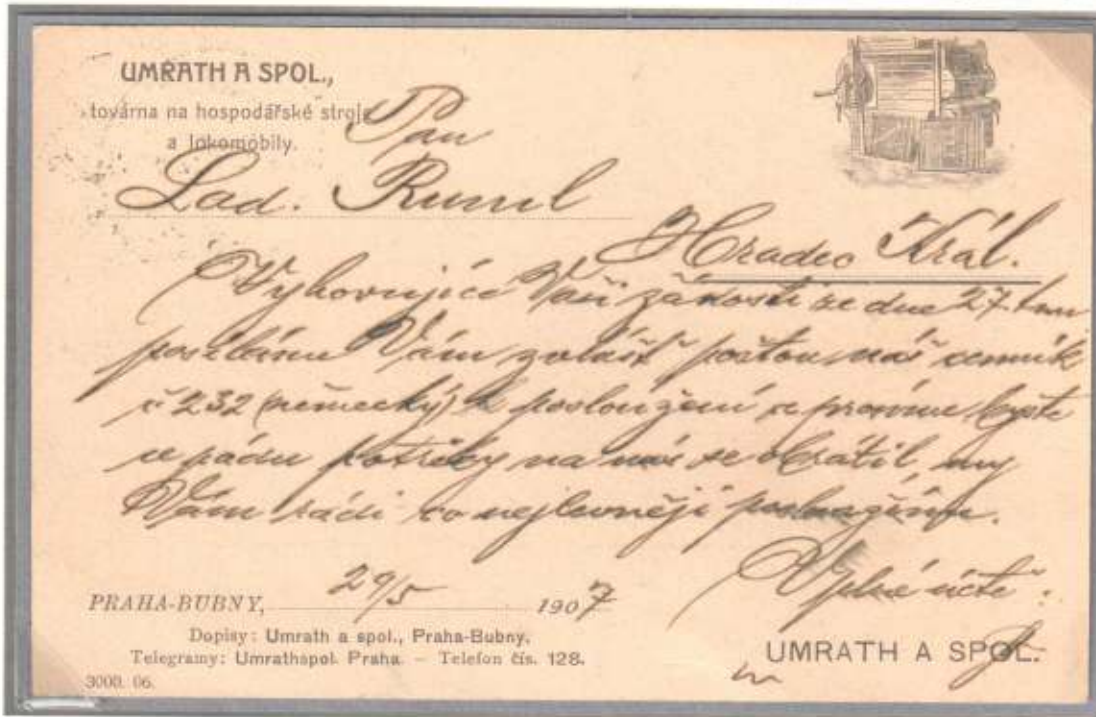 UMRATH A SPOL.,
továrna na hospodářské stroje
a lokomobily.
Pan
Lad.
Hradec Král.
Vyhovujíce Vaší žádosti ze dne 27. t.m.
posíláme Vám zvlášť poštou náš cenník
č 232 (německý) k posloužení a prosíme byste
v pádu potřeby na nás se obrátil, my
Vám rádi co nejlevněji posloužíme.
V plné úctě
PRAHA-BUBNY, 29/5 1907
Dopisy: Umrath a spol., Praha-Bubny.
Telegramy: Umrathspol. Praha. – Telefon čís. 128.
UMRATH A SPOL.
3000. 06.